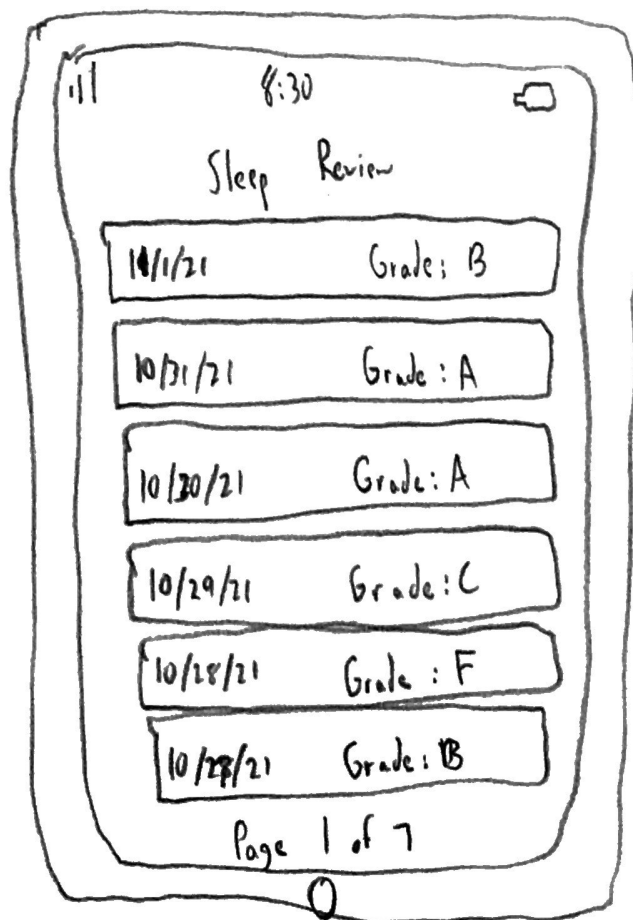 8:30
Sleep Review
11/1/21 Grade: B
10/31/21 Grade: A
10/30/21 Grade: A
10/29/21 Grade: C
10/28/21 Grade: F
Grade: B
Page 1 of 7